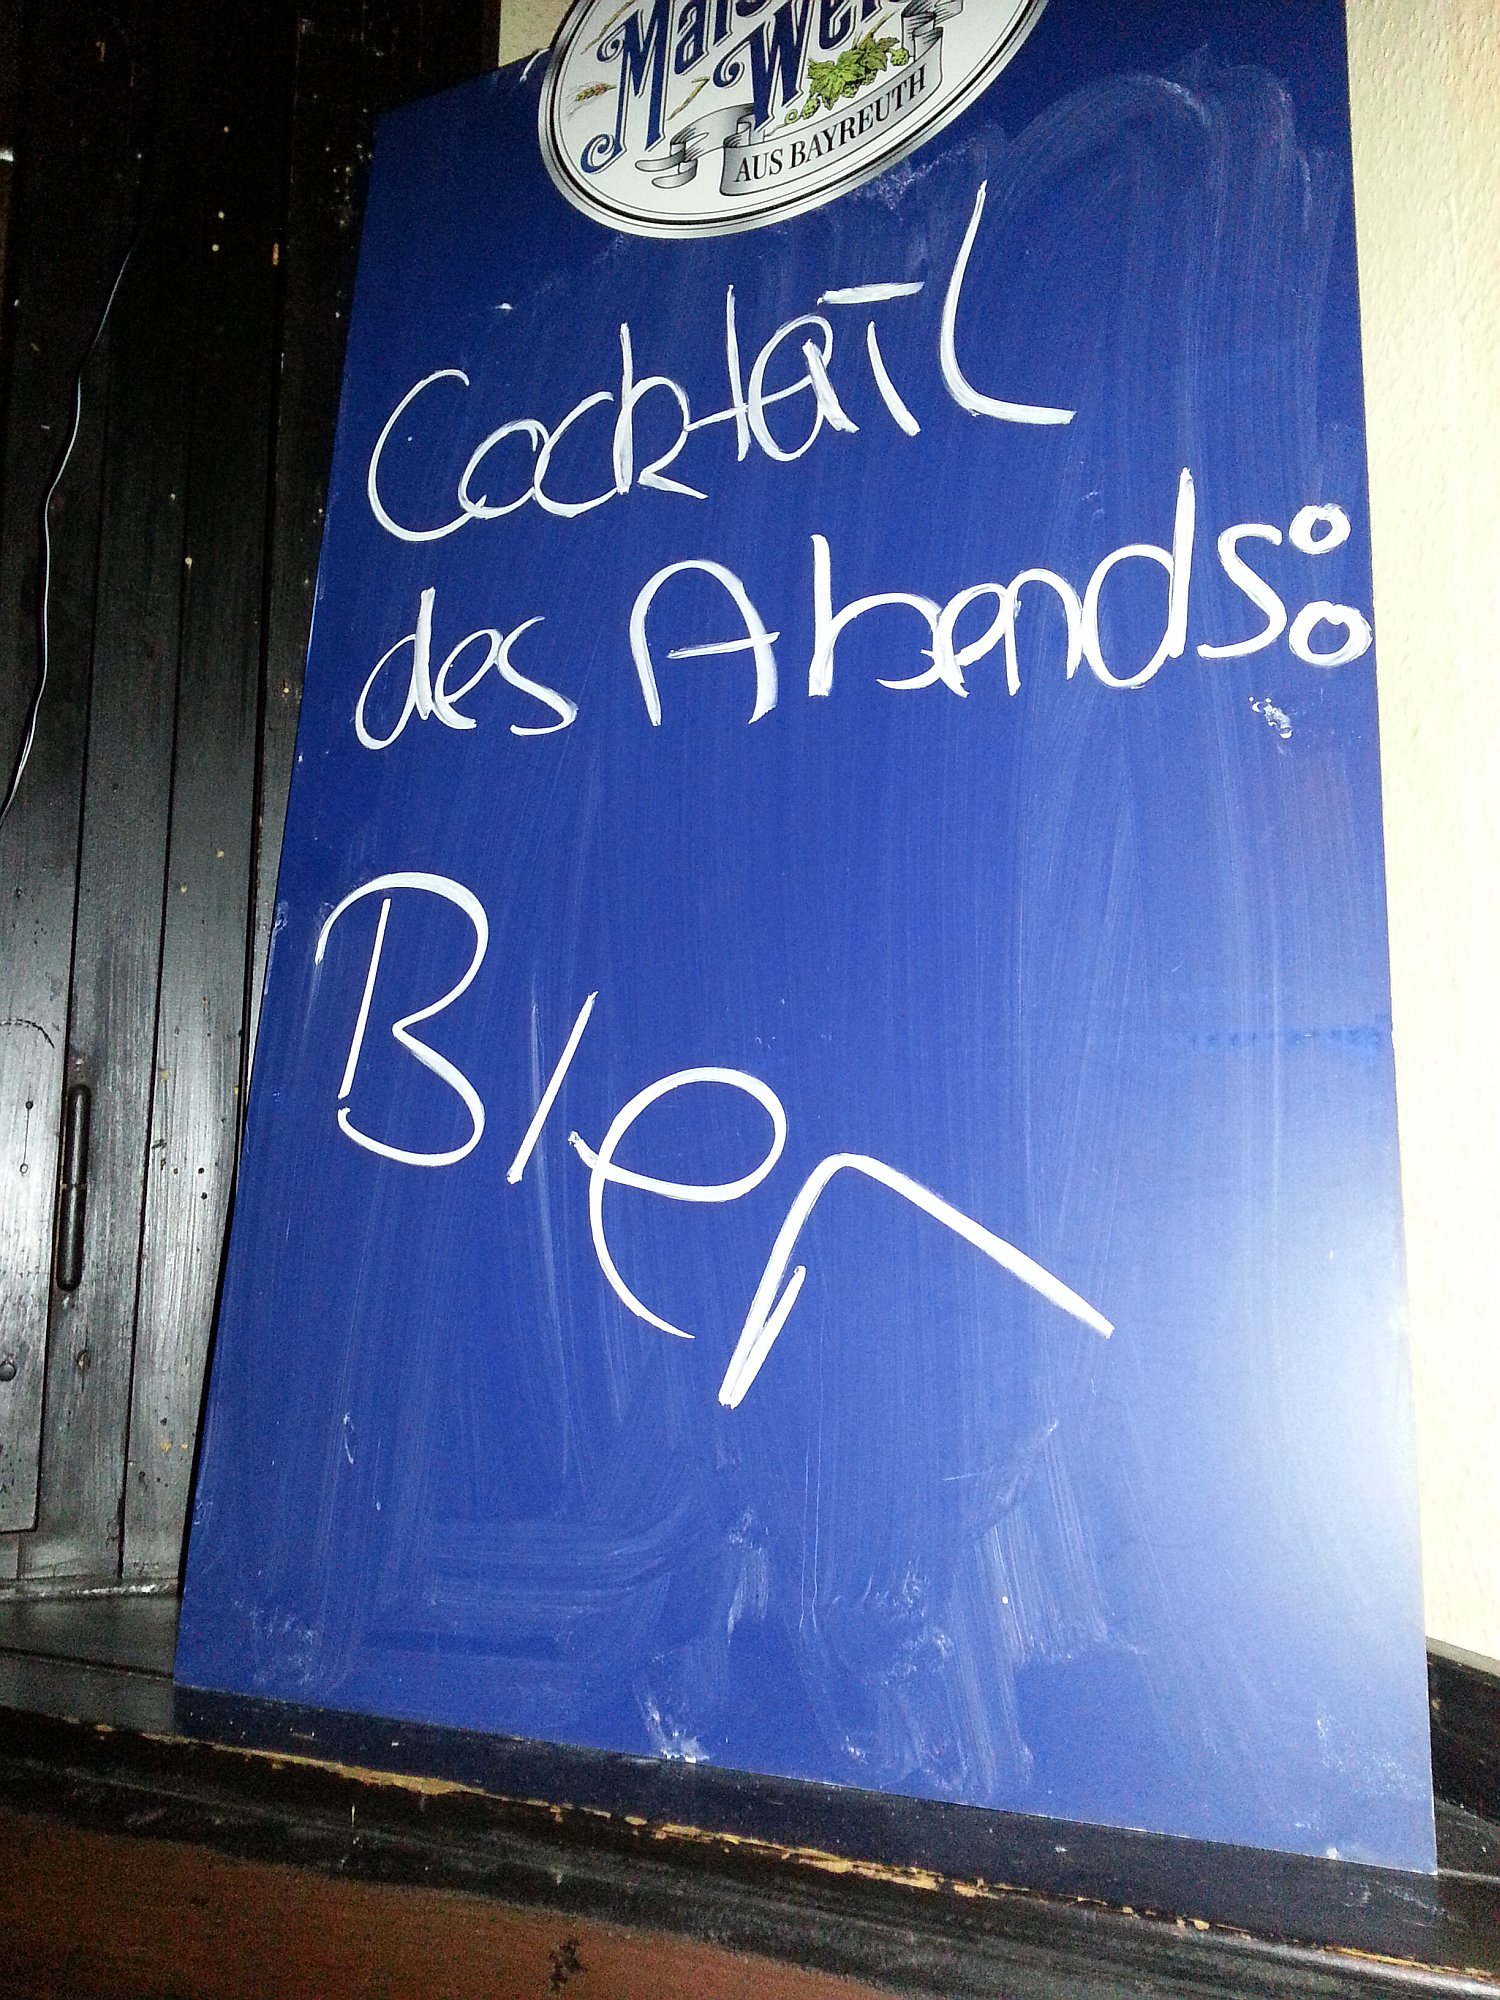 AUS BAYREUTH
Cocktail
des Abends:
Bier